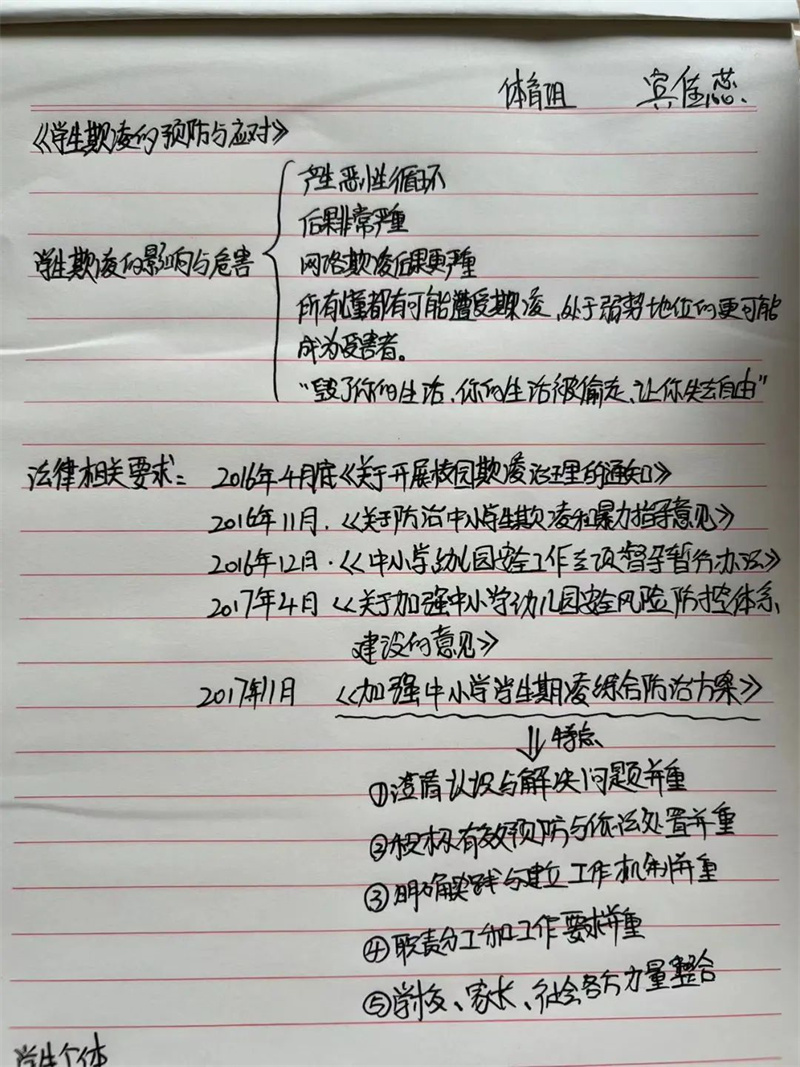 体育组 宾佳蕊
《学生欺凌的预防与应对》
产生恶性循环
后果非常严重
学生欺凌的影响与危害
网络欺凌后果更严重
所有儿童都有可能遭受欺凌,处于弱势地位的更可能
成为受害者。
“毁了你的生活,你的生活被偷走,让你失去自由”
法律相关要求: 2016年4月底《关于开展校园欺凌治理的通知》
2016年11月.《关于防治中小学生欺凌和暴力指导意见》
2016年12月.《中小学幼儿园安全工作专项督导暂行办法》
2017年4月《关于加强中小学幼儿园安全风险防控体系
建设的意见》
2017年11月 《加强中小学学生期凌综合防治方案》
特点
①澄清认识与解决问题并重
②积极有效预防与依法处置并重
③明确实践与建立工作机制并重
④职责分工和工作要求并重
⑤学校、家长、社会各方力量整合
学生个体